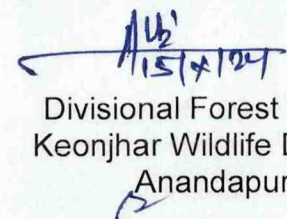 15/X/24
Divisional Forest
Keonjhar Wildlife D
Anandapur